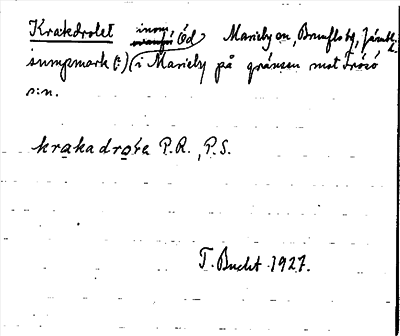 Krakdrolet inom Öd Marieby sn, Brunflo tg, Jämtl.
sumpmark (?) (i Marieby på gränsen mot Frösö
sn.
krakadrota P.R., P.S.
T. Bucht 1927.